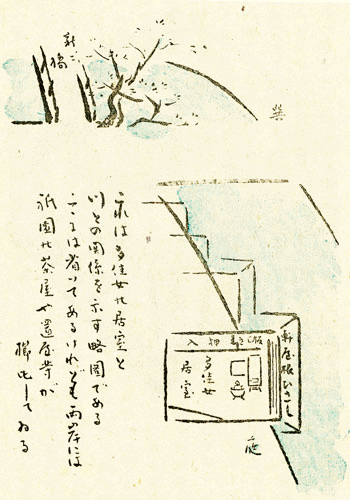 新橋
巽
これは多佳女の居室と
川との関係を示す略図である
こゝには省いてあるけれども両岸には
祇園の茶屋や置屋等が
櫛比してゐる
押入
多佳女
居室
庭